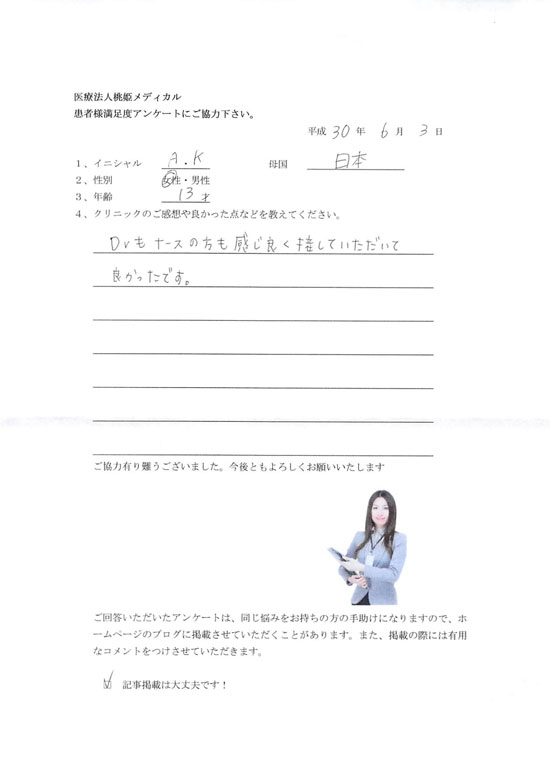 医療法人桃姫メディカル
患者様満足度アンケートにご協力下さい。
平成 30 年 6 月 3 日
1、イニシャル A.K 母国 日本
2、性別 女性・男性
3、年齢 13才
4、クリニックのご感想や良かった点などを教えてください。
Drもナースの方も感じ良く接していただいて
良かったです。
ご協力有り難うございました。今後ともよろしくお願いいたします
ご回答いただいたアンケートは、同じ悩みをお持ちの方の手助けになりますので、ホ
ームページのブログに掲載させていただくことがあります。また、掲載の際には有用
なコメントをつけさせていただきます。
☑ 記事掲載は大丈夫です！